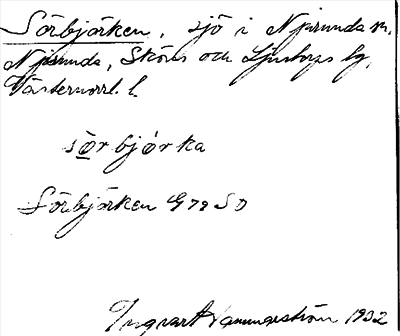 Sörbjörken, sjö i Njurunda sn,
Njurunda, Sköns och Ljustorps tg,
Västernorrl. l.
sörbjörka
Sörbjörken G 79 SO
Ingvart Hammarström 1932